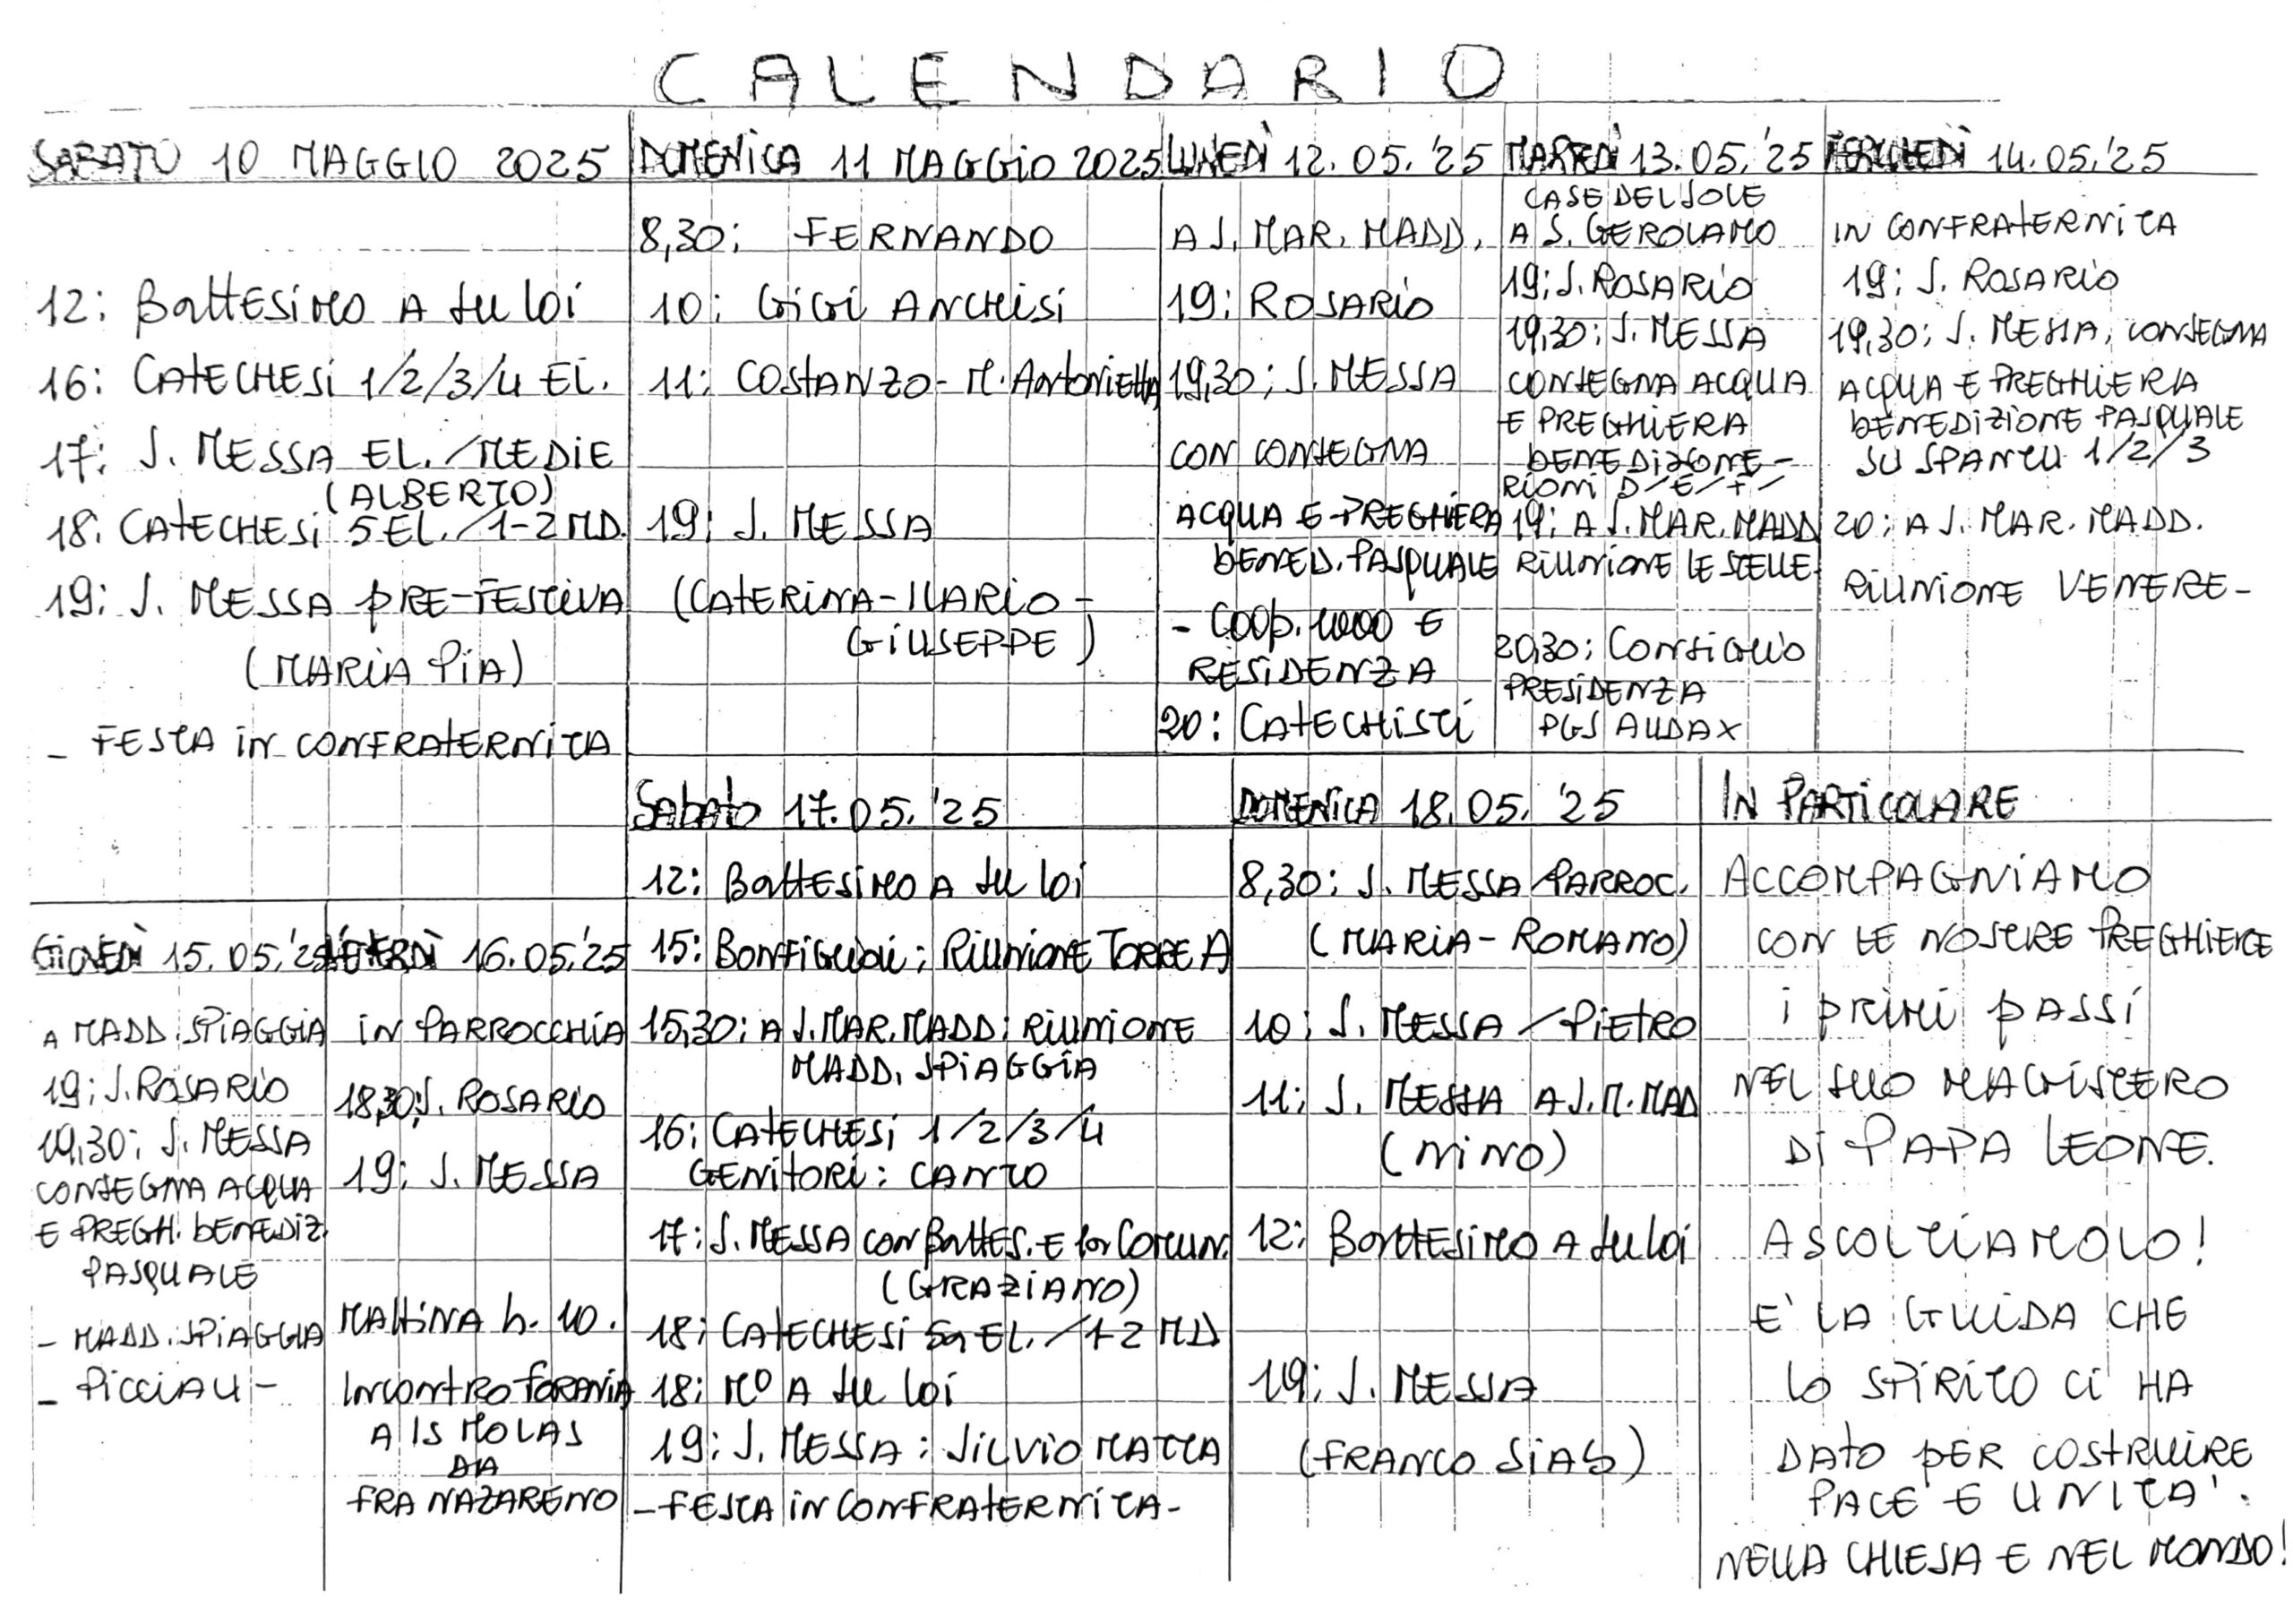 CALENDARIO
SABATO 10 MAGGIO 2025
12: BattESiMO A Su Loi
16: CAtECHESi 1/2/3/4 EL.
17: S. MESSA EL./MEDiE
(ALBERTO)
18: CAtECHESi 5 EL./1-2 MD.
19: S. MESSA pRE-FEStiVA
(MARiA PiA)
- FESTA iN CONFRAtERNiTA
DOMENiCA 11 MAGGiO 2025
8,30: FERNANDO
10: GiGi ANCHiSi
11: COStANZO - M. AntoniEttA
19: S. MESSA
(CAtERiNA - ILARiO -
GiUSEPPE)
LUNEDÌ 12.05.'25
A S. MAR. MADD.
19: ROSARiO
19,30: S. MESSA
CON CONSEGNA
ACQUA E PREGHiERA
bENED. PASQUALE
- COOp. 1000 E
RESiDENZA
20: CAtECHiSti
MARTEDÌ 13.05.'25
CASE DEL SOLE
A S. GEROLAMO
19: S. ROSARiO
19,30: S. MESSA
CONSEGNA ACQUA
E PREGHiERA
bENEDiZiONE -
RiONi D/E/F/
19: A S. MAR. MADD
RiUNiONE LE STELLE
20,30: CONSiGLiO
PRESiDENZA
PGS AUDAX
MERCOLEDÌ 14.05.'25
iN CONFRAtERNiTA
19: S. ROSARiO
19,30: S. MESSA, CONSEGNA
ACQUA E PREGHiERA
bENEDiZiONE PASQUALE
SU SPANtU 1/2/3
20: A S. MAR. MADD.
RiUNiONE VENERE-
GiOVEDÌ 15.05.'25
A MADD. SPiAGGiA
19: S. ROSARiO
19,30: S. MESSA
CONSEGNA ACQUA
E PREGH. bENEDiZ.
PASQUALE
- MADD. SPiAGGiA
- PiCCiAU -
VENERDÌ 16.05.'25
iN PARROCCHiA
18,30: S. ROSARiO
19: S. MESSA
MAttiNA h. 10.
INCONtRO FORANiA
A IS MOLAS
DA
FRA NAZARENO
Sabato 17.05.'25
12: BattESiMO A Su Loi
15: BONFiGLiOLi: RiUNiONE TORRE A
15,30: A S. MAR. MADD: RiUNiONE
MADD. SPiAGGiA
16: CAtECHESi 1/2/3/4
GENitORi: CANTO
17: S. MESSA CON BAttES. E CoMuN.
(GRAZiANO)
18: CAtECHESi 5a EL./1-2 MD
18: Mº A Su Loi
19: S. MESSA: SiLViO MATTA
- FESTA iN CONFRAtERNiTA -
DOMENiCA 18.05.'25
8,30: S. MESSA PARROC.
(MARiA - ROMANO)
10: S. MESSA / PiEtRO
11: S. MESSA A S. M. MAD
(NiNO)
12: BattESiMO A Su Loi
19: S. MESSA
(FRANCO SiAS)
IN PARTiCOLARE
ACCOMPAGNiAMO
CON LE NOSTRE PREGHiERE
i pRiMi pASSi
NEL SUO MAGiSTERO
Di PAPA LEONE.
ASCOLTiAMOLO!
E' LA GUiDA CHE
LO SPiRiTO Ci HA
DATO pER COStRUiRE
PACE E UNiTA'.
NELLA CHiESA E NEL MONDO!